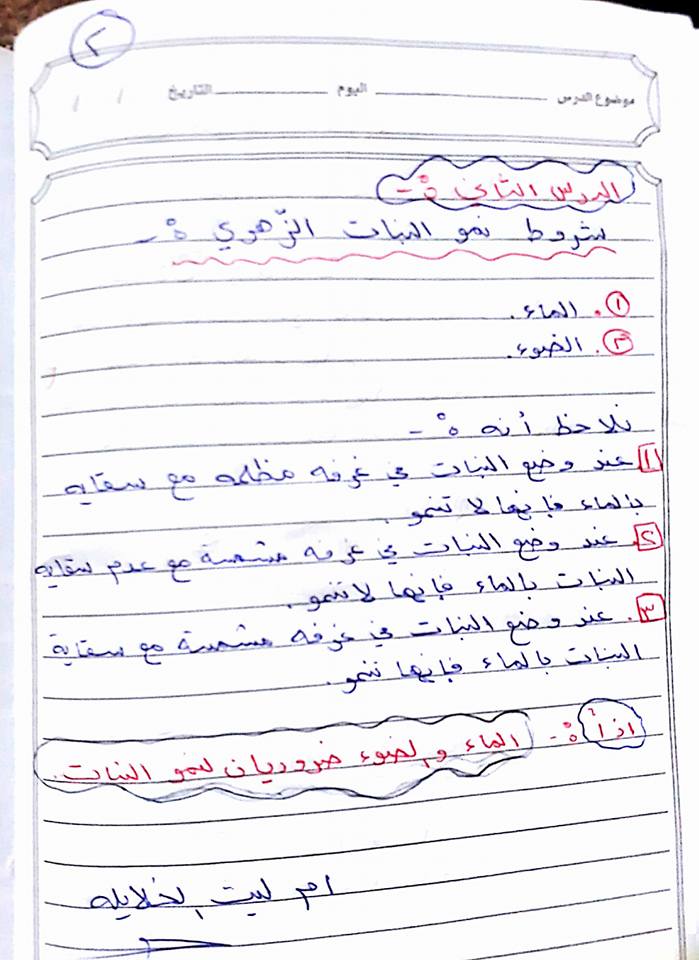 ٢
موضوع الدرس اليوم التاريخ / /
الدرس الثاني :-
شروط نمو النبات الزّهري :-
١. الماء.
٢. الضوء.
نلاحظ أنه :-
١ عند وضع النبات في غرفه مظلمه مع سقايه
بالماء فإنها لا تنمو.
٢. عند وضع النبات في غرفه مشمسة مع عدم سقايه
النبات بالماء فإنها لا تنمو.
٣. عند وضع النبات في غرفه مشمسة مع سقاية
النبات بالماء فإنها تنمو.
اذاً :- الماء والضوء ضروريان لنمو النبات.
ام ليث الخلايله